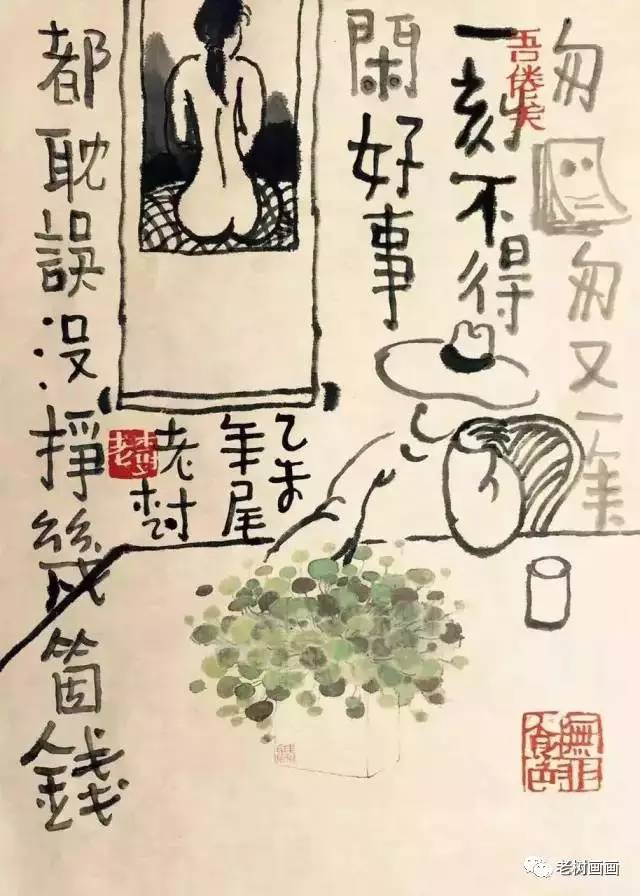 匆匆又一年
吾倦矣
一刻不得
閑好事
都耽誤没掙幾箇錢
乙未
年尾
老树
老樹
無非食色
老树画画